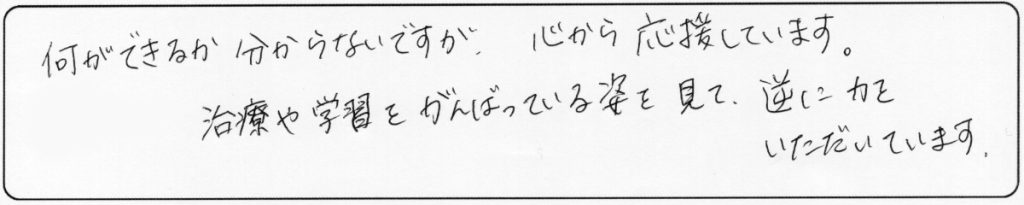 何ができるか分からないですが、心から応援しています。
治療や学習をがんばっている姿を見て、逆に力を
いただいています。